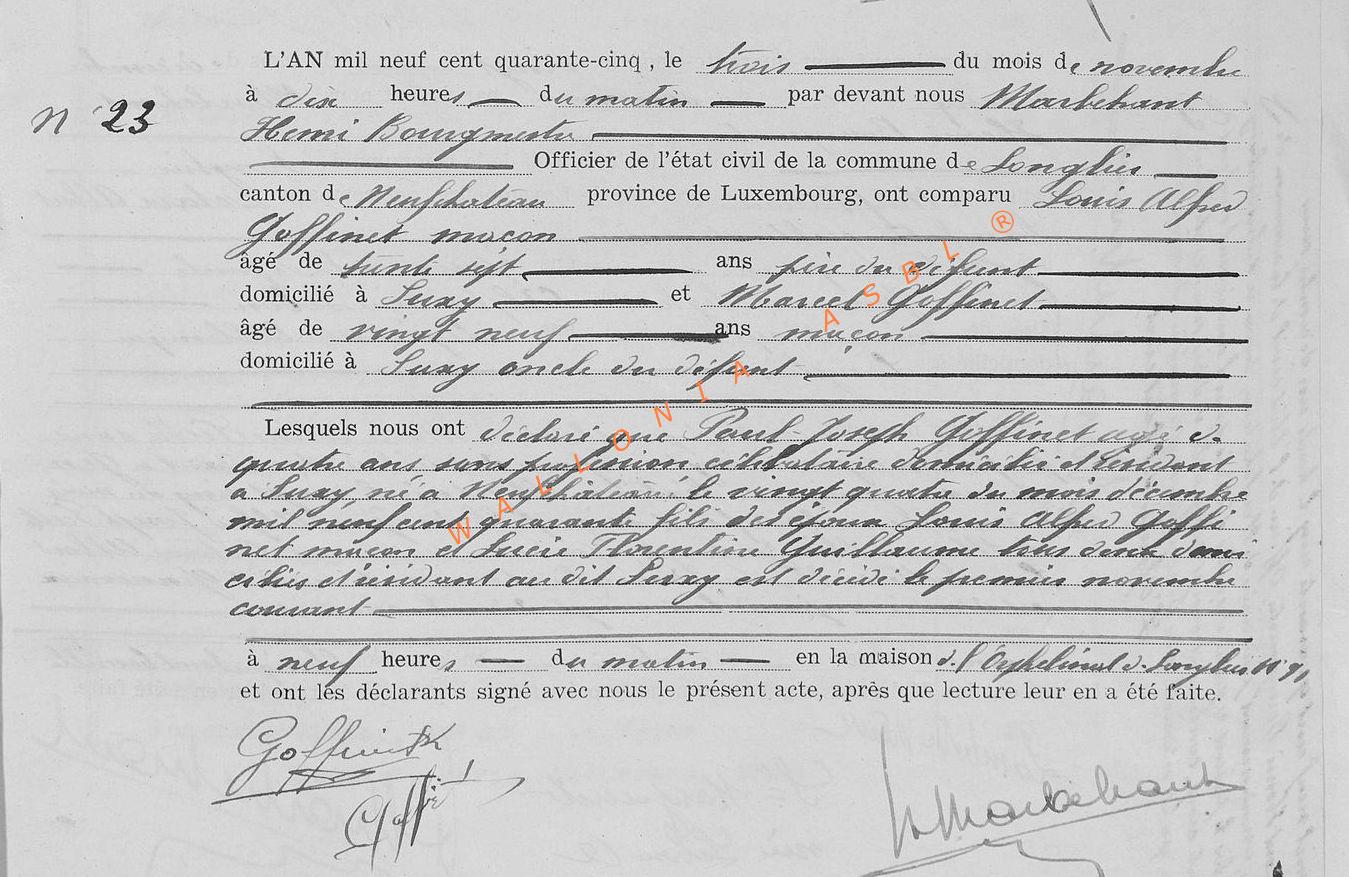 L'AN mil neuf cent quarante-cinq, le trois du mois de novembre
à dix heures du matin par devant nous Marbehant
N° 23
Henri Bourgmestre
Officier de l'état civil de la commune de Longlier
canton de Neufchateau province de Luxembourg, ont comparu Louis Alfred
Goffinet maçon
âgé de trente sept ans père du défunt
domicilié à Suxy et Marcel Goffinet
âgé de vingt neuf ans maçon
domicilié à Suxy oncle du défunt
Lesquels nous ont déclaré que Paul Joseph Goffinet agé de
quatre ans sans profession célibataire domicilié et résidant
a Suxy né a Neufchateau le vingt quatre du mois décembre
mil neuf cent quarante fils des époux Louis Alfred Goffi
net maçon et Lucie Florentine Guillaume tous deux domi
ciliés et résidant au dit Suxy est décédé le premier novembre
courant
à neuf heures du matin en la maison de l'Orphelinat de Longlier
et ont les déclarants signé avec nous le présent acte, après que lecture leur en a été faite.
Goffinet
Goffi
H Marbehant
WALLONIA ASBL ®